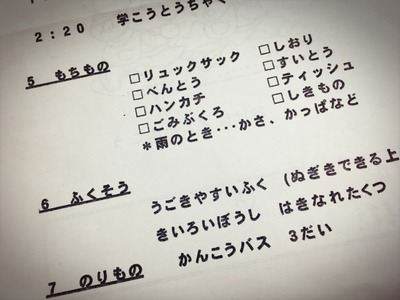 2：20　学こうとうちゃく
5　もちもの
□リュックサック　□しおり
□べんとう　□すいとう
□ハンカチ　□ティッシュ
□ごみぶくろ　□しきもの
＊雨のとき･･･かさ、かっぱなど
6　ふくそう
うごきやすいふく　(ぬぎきできる上
きいろいぼうし　はきなれたくつ
7　のりもの　かんこうバス　3だい